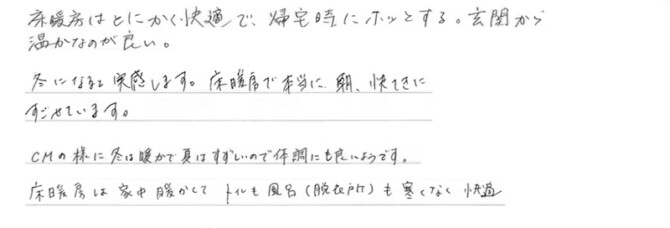 床暖房はとにかく快適で、帰宅時にホッとする。玄関から
温かなのが良い。
冬になると実感します。床暖房で本当に朝、快てきに
すごせています。
CMの様に冬は暖かで夏はすずしいので体調にも良いようです。
床暖房は家中暖かくてトイレも風呂(脱衣所)も寒くなく快適